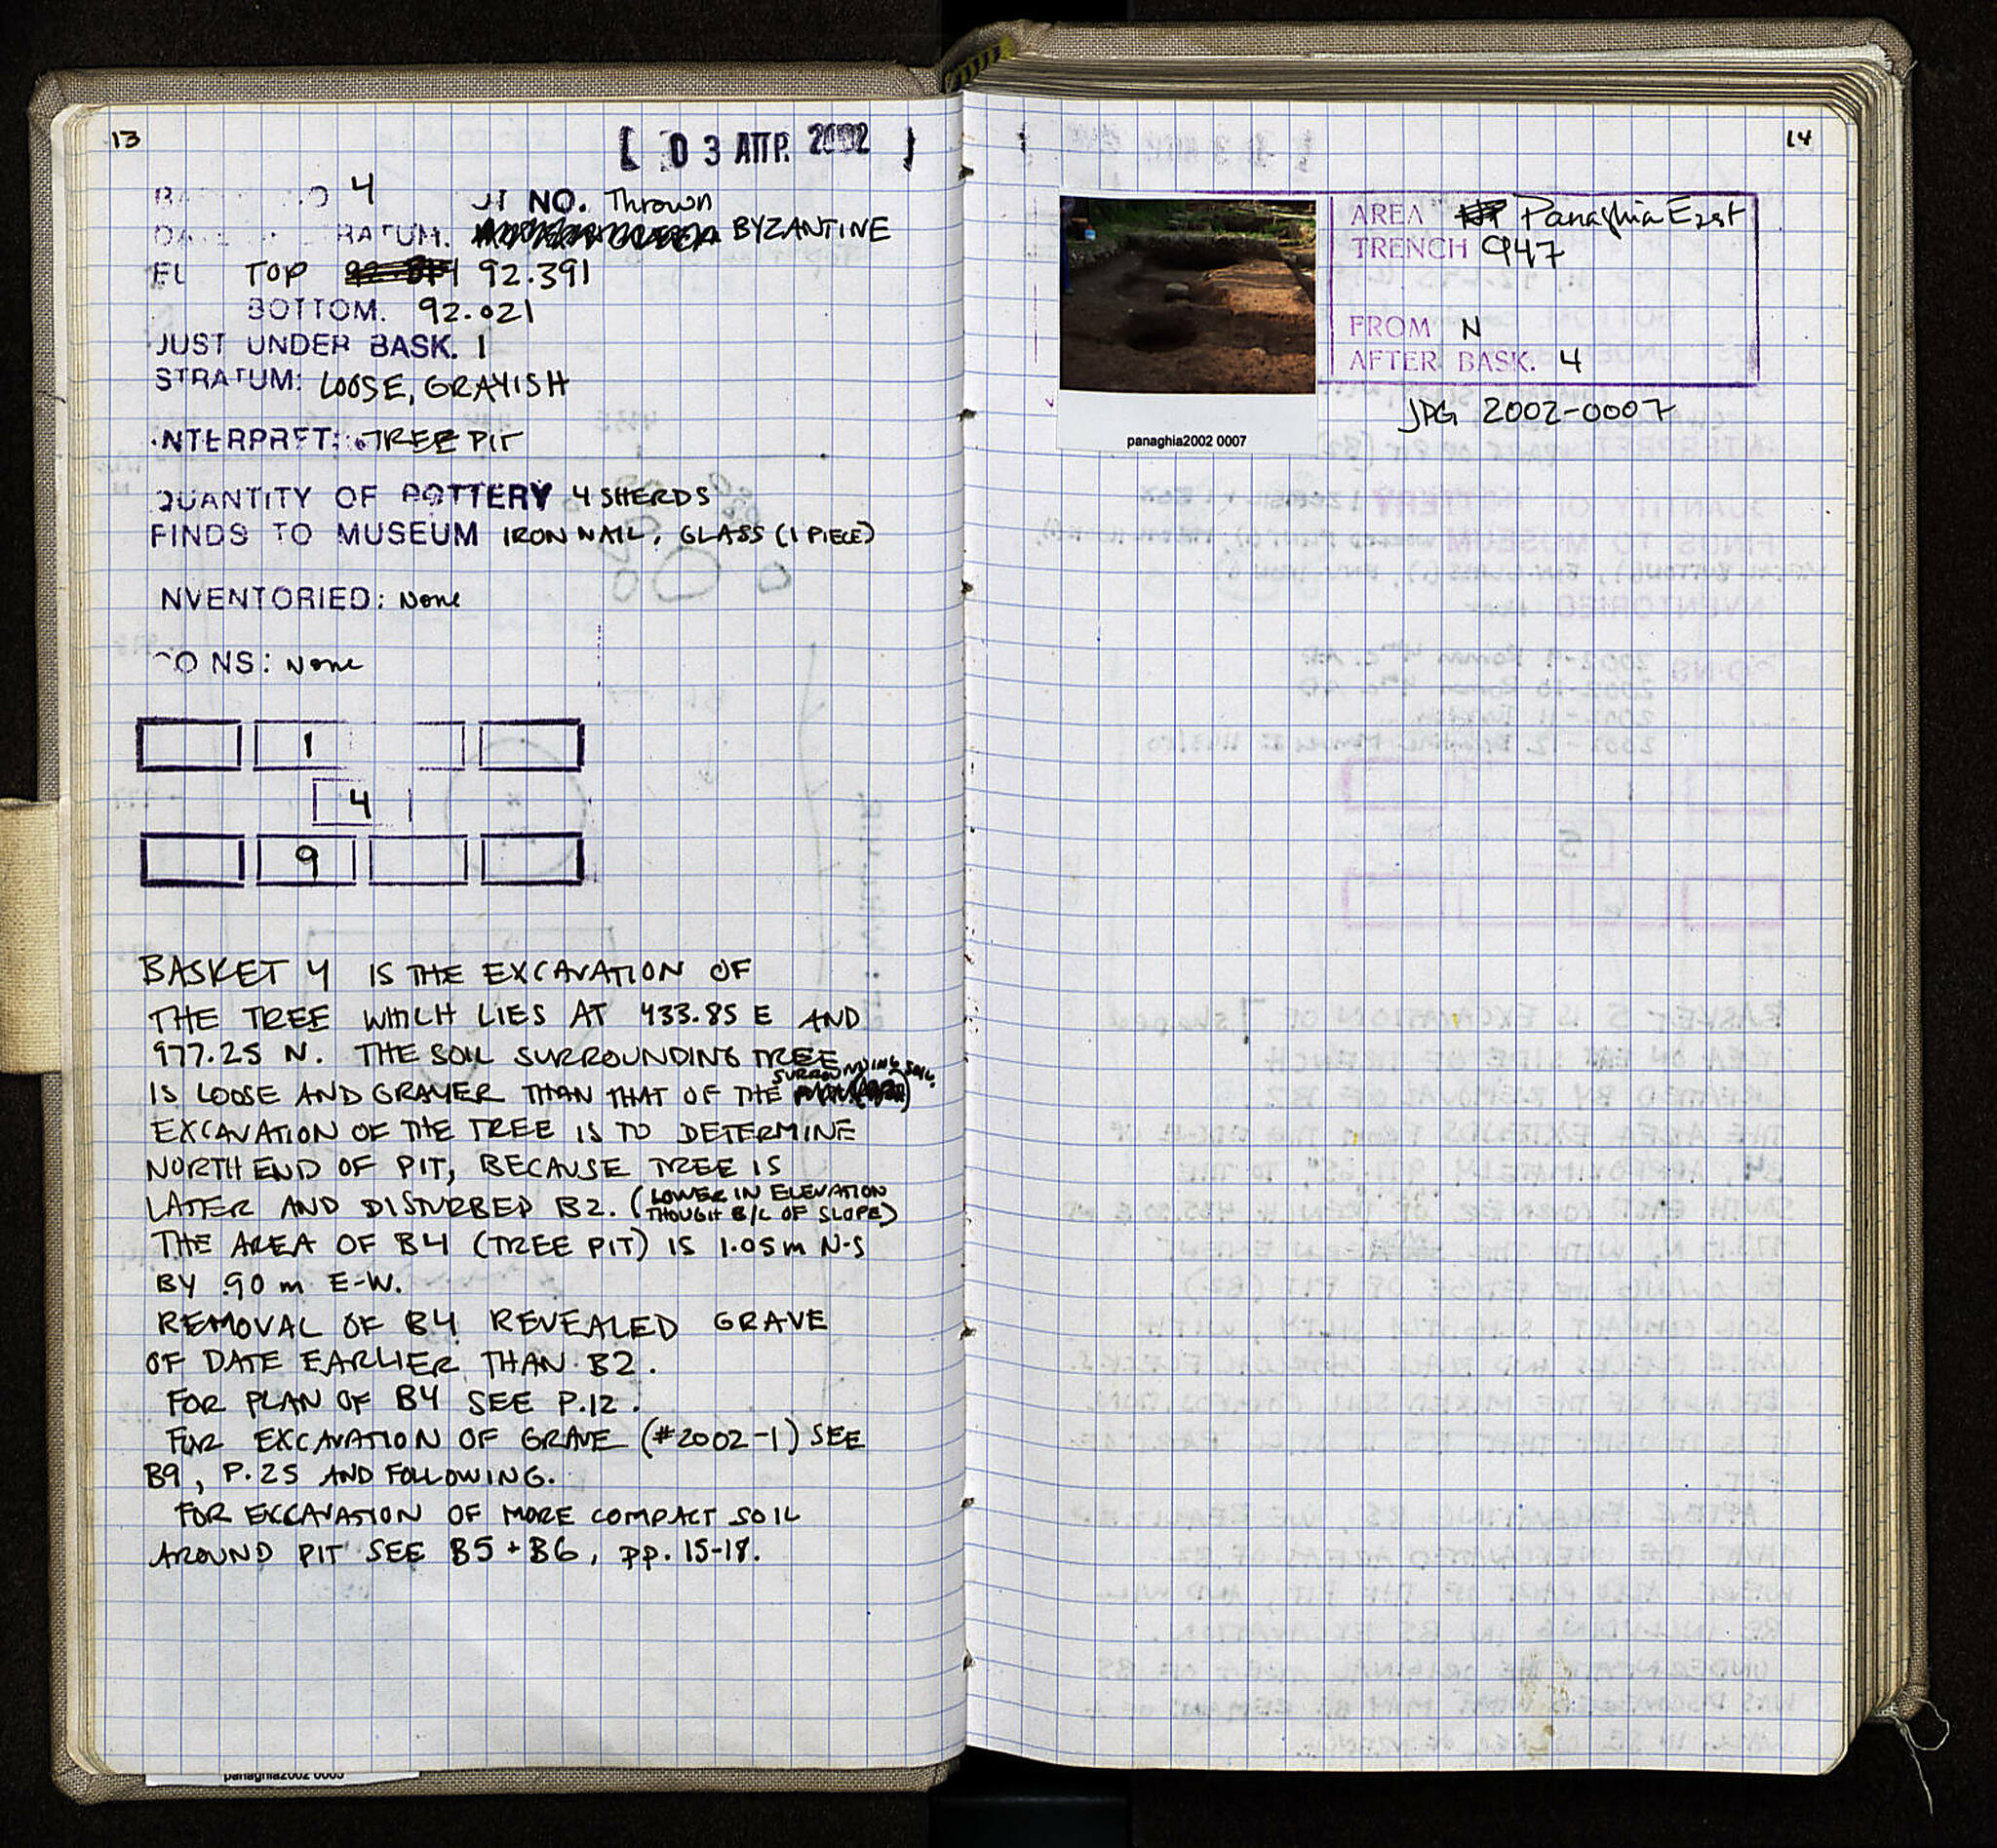 13
[ 03 ΑΠΡ. 2002 ]
4 NO. Thrown
RATUM. BYZANTINE
TOP 92.391
BOTTOM. 92.021
JUST UNDER BASK. 1
STRATUM: LOOSE, GRAYISH
NTERPRET: TREE PIT
QUANTITY OF POTTERY 4 SHERDS
FINDS TO MUSEUM IRON NAIL, GLASS (1 PIECE)
NVENTORIED: None
O NS: None
1
4
9
BASKET 4 IS THE EXCAVATION OF
THE TREE WHICH LIES AT 433.85 E AND
977.25 N. THE SOIL SURROUNDING TREE
IS LOOSE AND GRAYER THAN THAT OF THE SURROUNDING SOIL.
EXCAVATION OF THE TREE IS TO DETERMINE
NORTH END OF PIT, BECAUSE TREE IS
LATER AND DISTURBED B2. (LOWER IN ELEVATION
THOUGH B/C OF SLOPE)
THE AREA OF B4 (TREE PIT) IS 1.05m N-S
BY .90 m E-W.
REMOVAL OF B4 REVEALED GRAVE
OF DATE EARLIER THAN B2.
FOR PLAN OF B4 SEE P.12.
FOR EXCAVATION OF GRAVE (#2002-1) SEE
B9, P.25 AND FOLLOWING.
FOR EXCAVASION OF MORE COMPACT SOIL
AROUND PIT SEE B5 + B6, pp. 15-18.
panaghia2002 0005
14
AREA Panaghia East
TRENCH 947
FROM N
AFTER BASK. 4
JPG 2002-0007
panaghia2002 0007